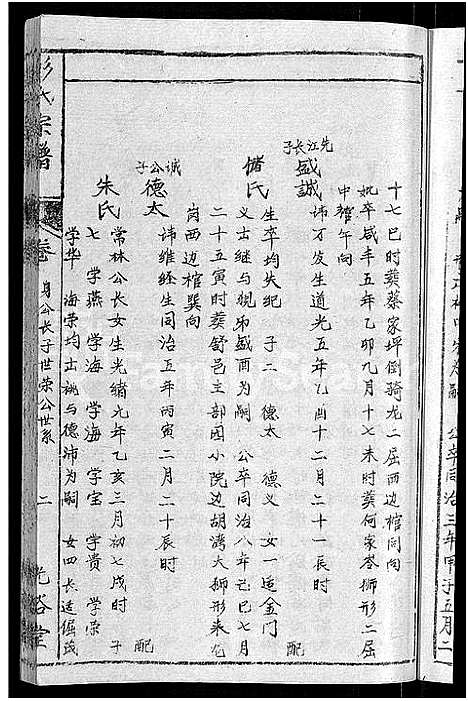 十七巳时葬蔡家坪倒骑龙二屈西边棺同向
妣卒咸丰五年乙卯九月十七未时葬何家岺狮形二屈
中棺午向
先江长子
盛誠 讳万发生道光五年乙酉十二月二十一辰时 配
储氏 生卒均失纪 子二 德太 德义 女一适金门
义出继与规弟盛酉为嗣 公卒同治八年己巳七月
二十五寅时葬舒邑主部园小院边胡湾大狮形来屹
岗西边棺巽向
诚公子
德太 讳维经生同治五年丙寅二月二十辰时 配
朱氏 常林公长女生光绪九年乙亥三月初七戌时 子
七 学燕 学海 学海 学宝 学贵 学宗
学华 海荣均出祧与德沛为嗣 女四长适倪茂
彭氏宗譜
卷
身公长子世荣公世系
二
光裕堂
公卒同治三年甲子五月二